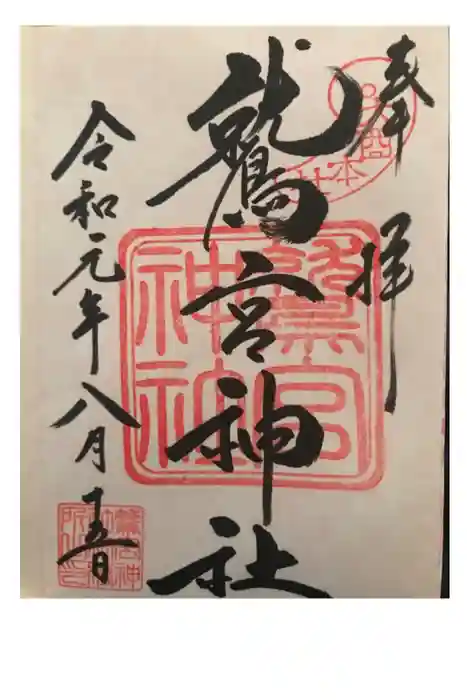 奉拝
鷲宮神社
令和元年八月十五日
鷲宮
神社